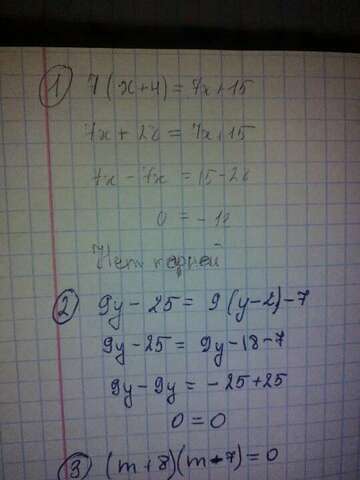 1) 7(x+4)=7x+15
7x+28=7x+15
7x-7x=15-28
0=-13
Нет корней
2) 9y-25=9(y-2)-7
9y-25=9y-18-7
9y-9y=-25+25
0=0
3) (m+8)(m-7)=0